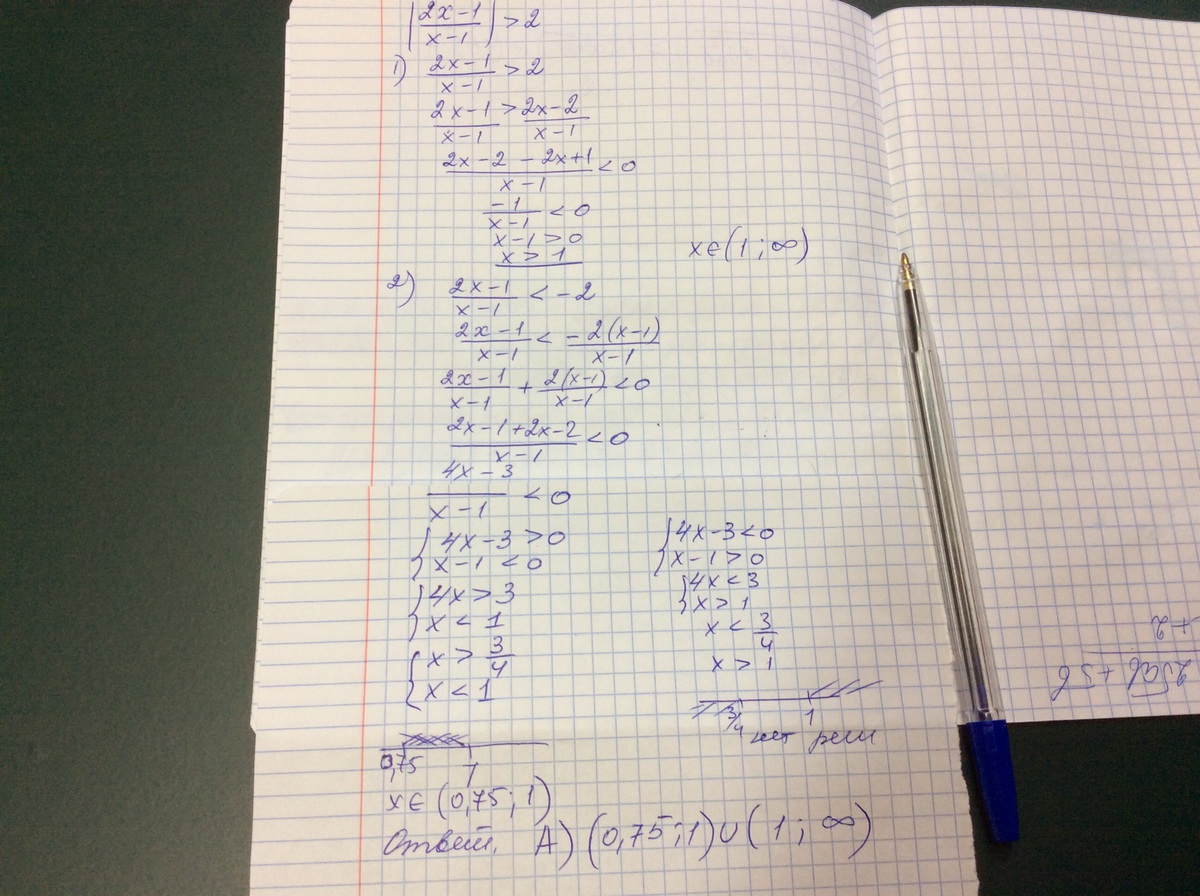 |(2x-1)/(x-1)| > 2
1) (2x-1)/(x-1) > 2
(2x-1)/(x-1) > (2x-2)/(x-1)
(2x-2 -2x+1)/(x-1) < 0
-1/(x-1) < 0
x-1 > 0
x > 1
x∈(1; ∞)
2) (2x-1)/(x-1) < -2
(2x-1)/(x-1) < -2(x-1)/(x-1)
(2x-1)/(x-1) + 2(x-1)/(x-1) < 0
(2x-1+2x-2)/(x-1) < 0
(4x-3)/(x-1) < 0
{4x-3 > 0
x-1 < 0
{4x > 3
x < 1
{x > 3/4
x < 1
0,75 1
x∈(0,75; 1)
{4x-3 < 0
x-1 > 0
{4x < 3
x > 1
x < 3/4
x > 1
3/4 1
нет реш
Ответ. А) (0,75; 1)∪(1; ∞)